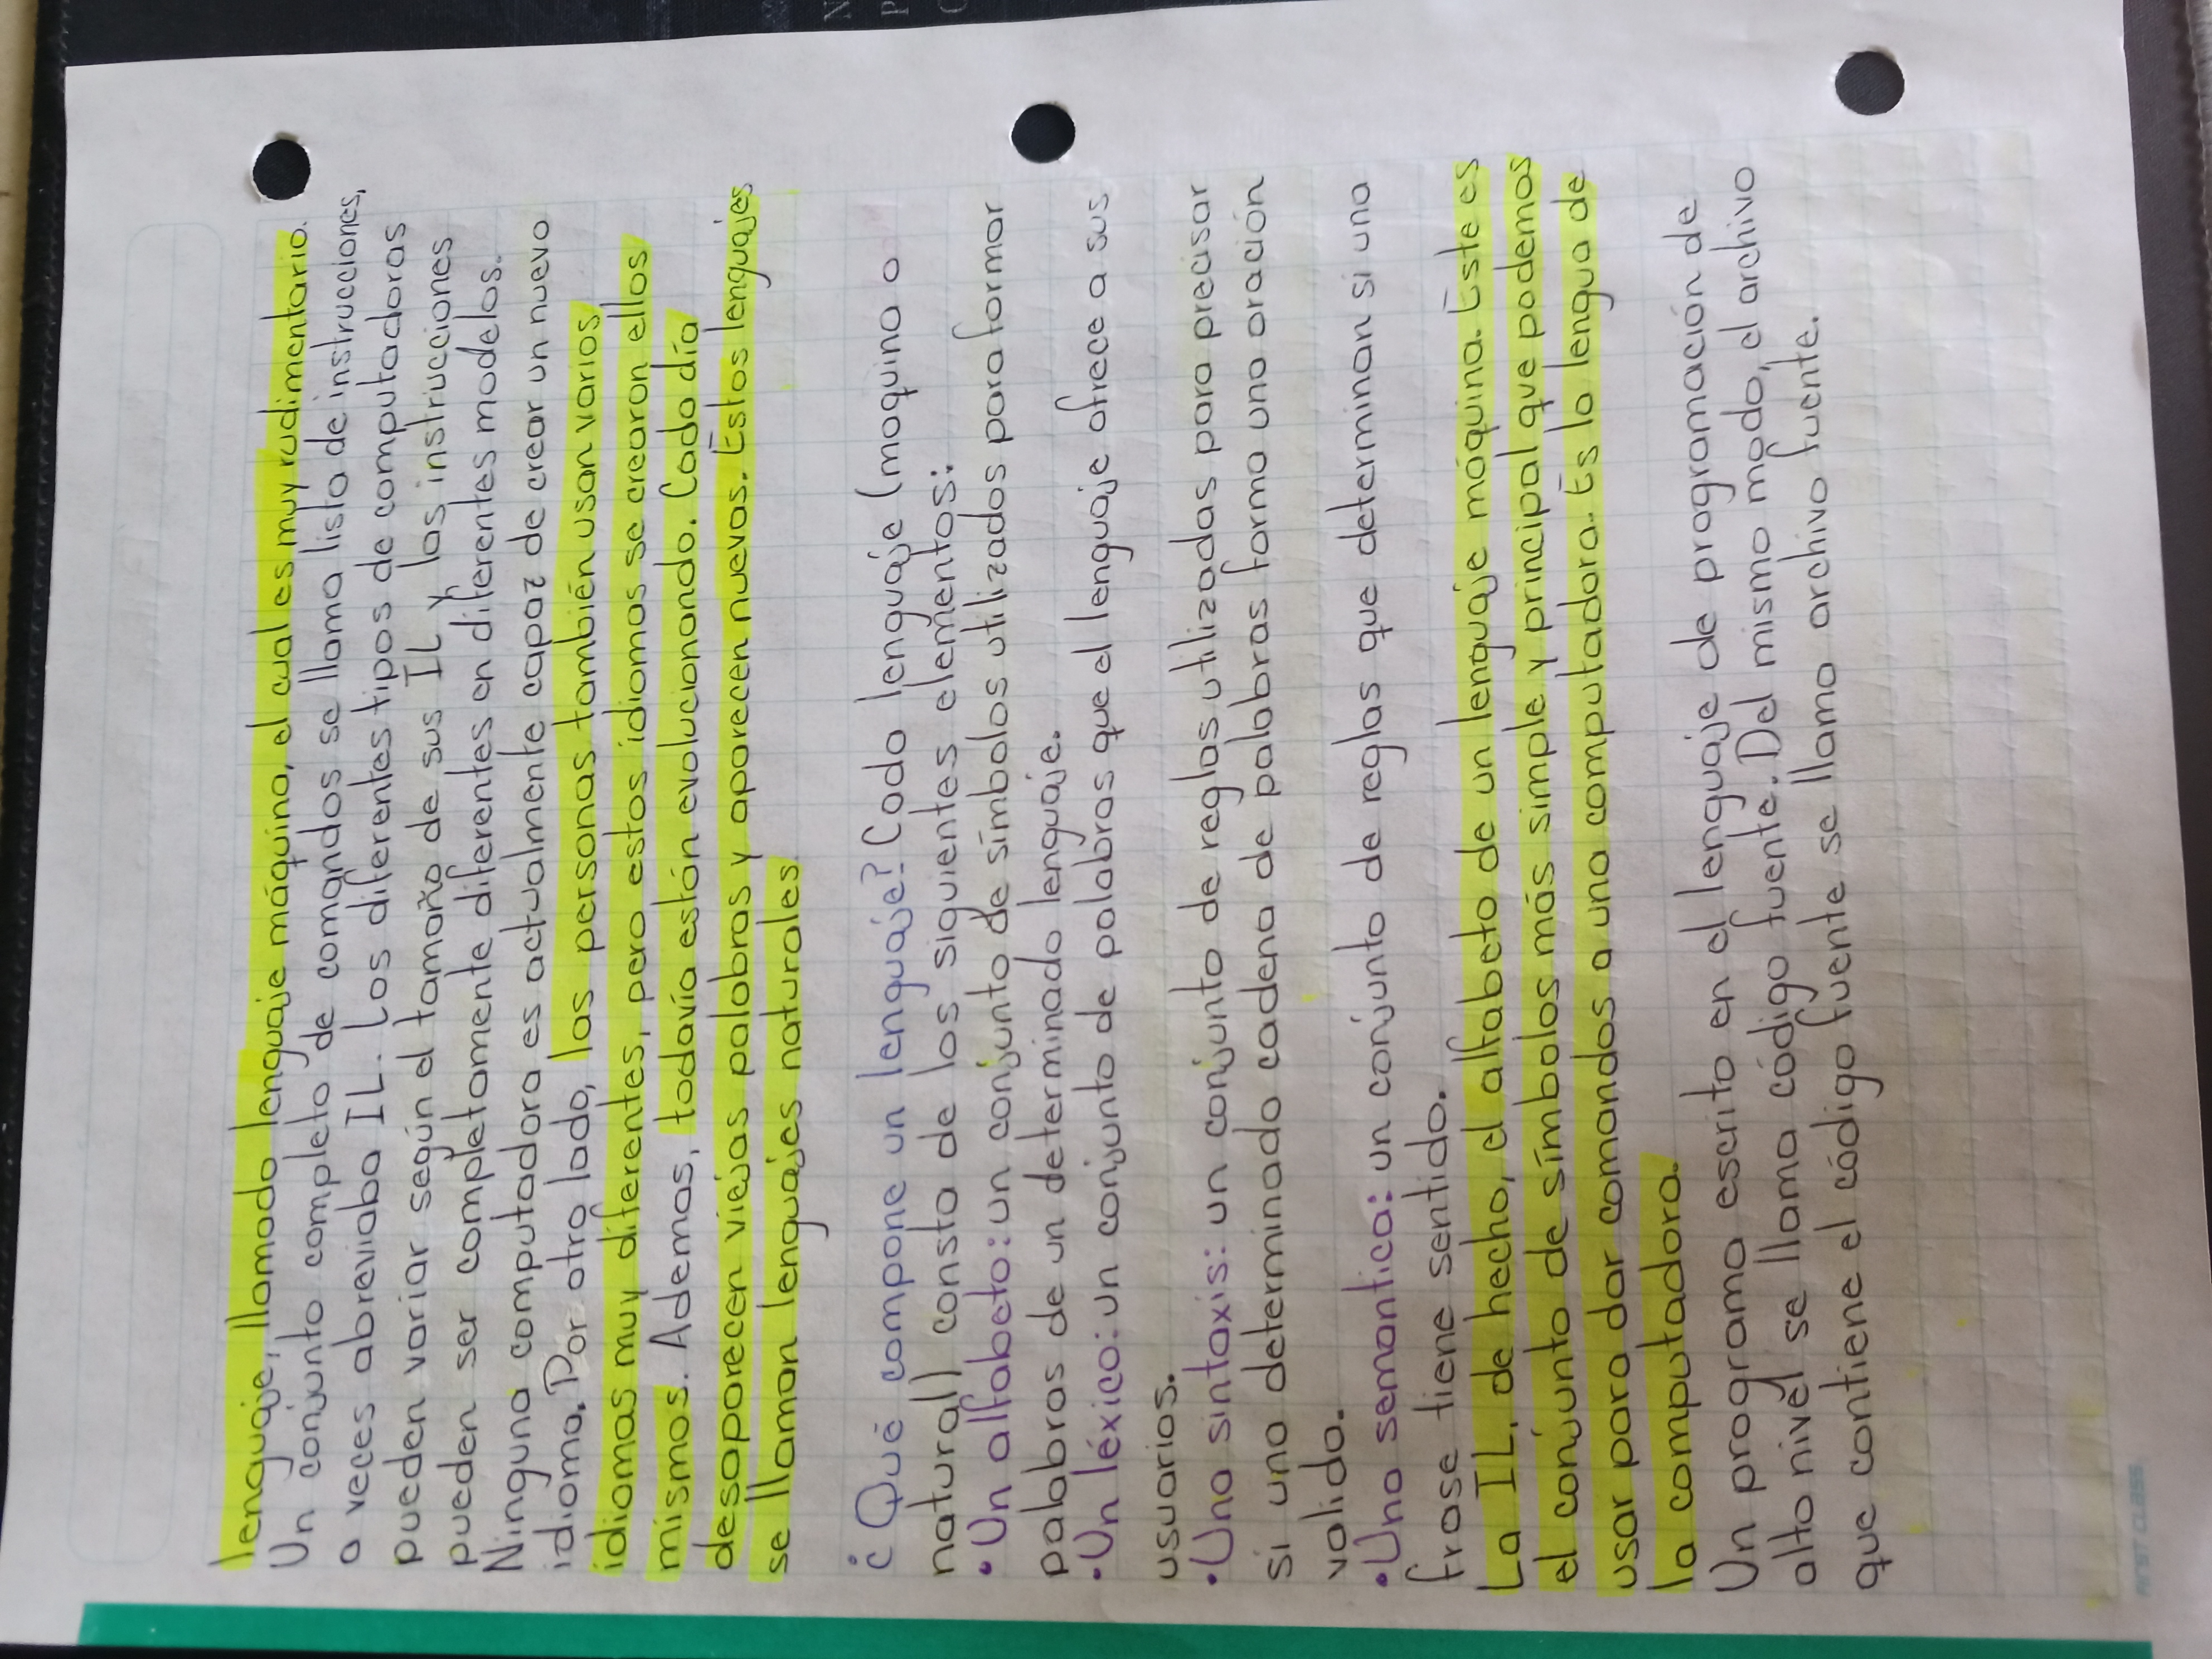 lenguaje, llamado lenguaje máquina, el cual es muy rudimentario.
Un conjunto completo de comandos se llama lista de instrucciones,
a veces abreviaba IL. Los diferentes tipos de computadoras
pueden variar según el tamaño de sus IL y las instrucciones
pueden ser completamente diferentes en diferentes modelos.
Ninguna computadora es actualmente capaz de crear un nuevo
idioma. Por otro lado, las personas también usan varios
idiomas muy diferentes, pero estos idiomas se crearon ellos
mismos. Ademas, todavía están evolucionando. Cada día
desaparecen viejas palabras y aparecen nuevas. Estos lenguajes
se llaman lenguajes naturales
¿Qué compone un lenguaje? Cada lenguaje (maquina o
natural) consta de los siguientes elementos:
• Un alfabeto: un conjunto de símbolos utilizados para formar
palabras de un determinado lenguaje.
• Un léxico: un conjunto de palabras que el lenguaje ofrece a sus
usuarios.
• Una sintaxis: un conjunto de reglas utilizadas para precisar
si una determinada cadena de palabras forma una oración
valida.
• Una semantica: un conjunto de reglas que determinan si una
frase tiene sentido.
La IL, de hecho, el alfabeto de un lenguaje máquina. Este es
el conjunto de símbolos más simple y principal que podemos
usar para dar comandos a una computadora. Es la lengua de
la computadora.
Un programa escrito en el lenguaje de programación de
alto nivel se llama código fuente. Del mismo modo, el archivo
que contiene el código fuente se llama archivo fuente.
FIRST CLASS